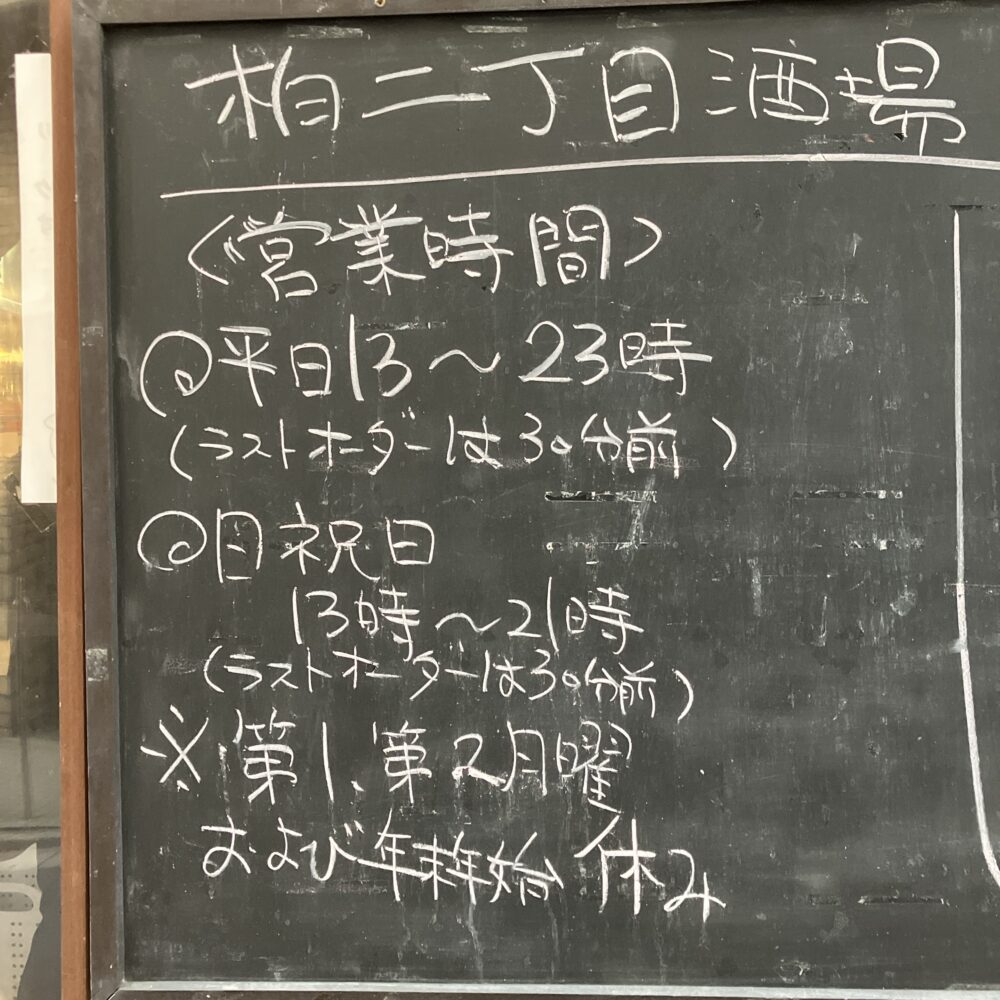 柏二丁目酒場
<営業時間>
◎平日13〜23時
(ラストオーダーは30分前)
◎日祝日
13時〜21時
(ラストオーダーは30分前)
※第1、第2月曜
および年末年始 休み